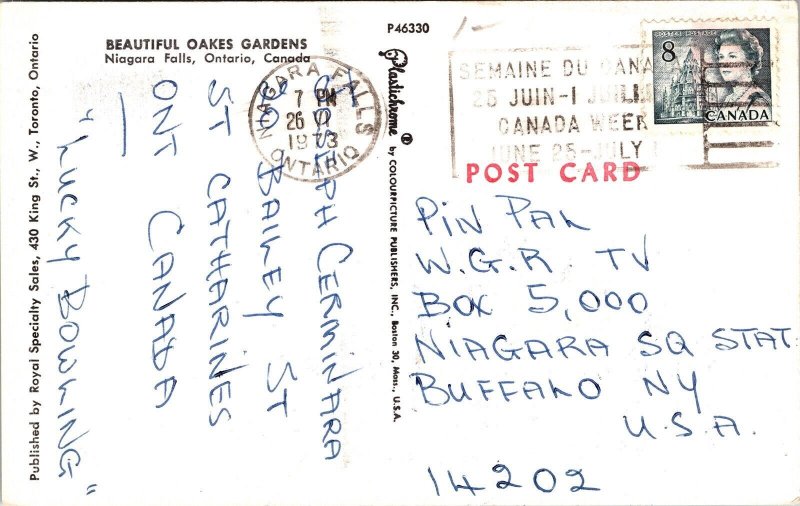 BEAUTIFUL OAKES GARDENS
Niagara Falls, Ontario, Canada
P46330
Published by Royal Specialty Sales, 430 King St., W., Toronto, Ontario
Plastichrome ® by COLOURPICTURE PUBLISHERS, INC., Boston 30, Mass., U.S.A.
NIAGARA FALLS
7 PM
26 VI
1973
ONTARIO
SEMAINE DU CANA
25 JUIN-1 JUILLE
CANADA WEEK
JUNE 25-JULY 1
8
POSTES POSTAGE
CANADA
POST CARD
JOSEPH CERMINARA
BAILEY ST
ST CATHARINES
ONT CANADA
"LUCKY BOWLING"
PIN PAL
W.G.R. TV
BOX 5,000
NIAGARA SQ STAT
BUFFALO NY
U.S.A.
14202